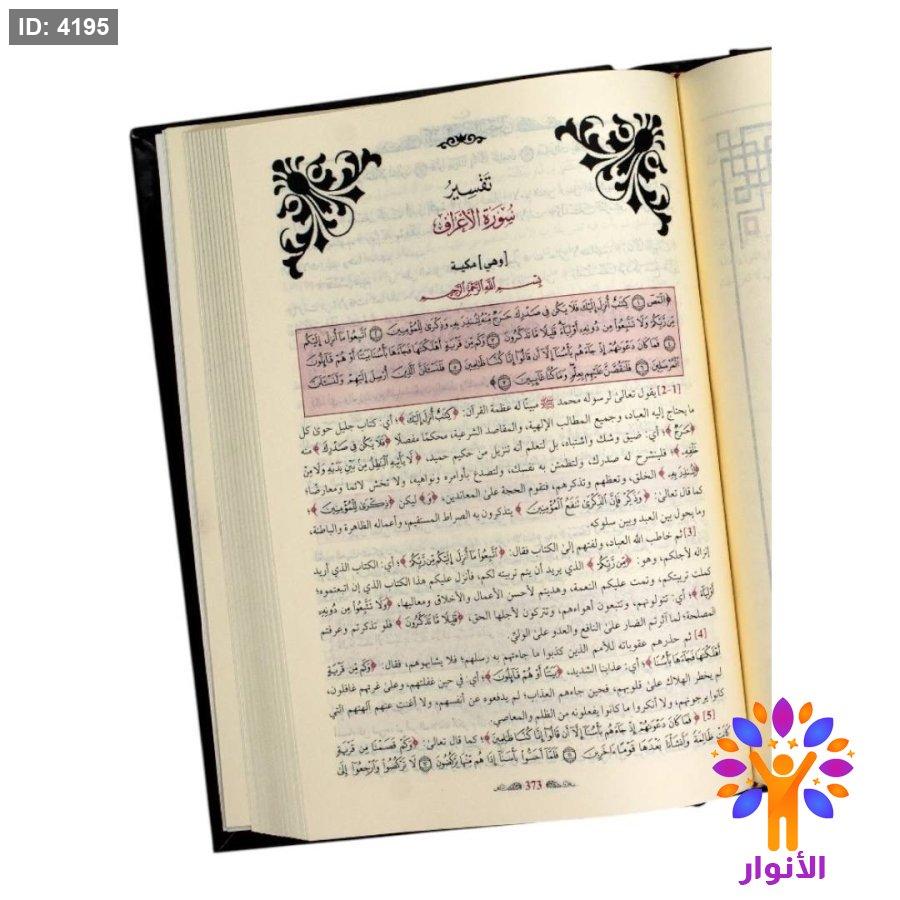 ID: 4195
تَفْسِيرُ
سُورَةِ الأَعْرَافِ
[وهي] مكية
بِسْمِ اللَّهِ الرَّحْمَٰنِ الرَّحِيمِ
﴿الٓمٓصٓ ۝١ كِتَٰبٌ أُنزِلَ إِلَيْكَ فَلَا يَكُن فِى صَدْرِكَ حَرَجٌ مِّنْهُ لِتُنذِرَ بِهِۦ وَذِكْرَىٰ لِلْمُؤْمِنِينَ ۝٢ ٱتَّبِعُوا۟ مَآ أُنزِلَ إِلَيْكُم
مِّن رَّبِّكُمْ وَلَا تَتَّبِعُوا۟ مِن دُونِهِۦٓ أَوْلِيَآءَ قَلِيلًا مَّا تَذَكَّرُونَ ۝٣ وَكَم مِّن قَرْيَةٍ أَهْلَكْنَٰهَا فَجَآءَهَا بَأْسُنَا بَيَٰتًا أَوْ هُمْ قَآئِلُونَ
۝٤ فَمَا كَانَ دَعْوَىٰهُمْ إِذْ جَآءَهُم بَأْسُنَآ إِلَّآ أَن قَالُوٓا۟ إِنَّا كُنَّا ظَٰلِمِينَ ۝٥ فَلَنَسْـَٔلَنَّ ٱلَّذِينَ أُرْسِلَ إِلَيْهِمْ وَلَنَسْـَٔلَنَّ
ٱلْمُرْسَلِينَ ۝٦ فَلَنَقُصَّنَّ عَلَيْهِم بِعِلْمٍ وَمَا كُنَّا غَآئِبِينَ ۝٧﴾
[1-2] يقول تعالى لرسوله محمد ﷺ مبينًا له عظمة القرآن: ﴿كِتَٰبٌ أُنزِلَ إِلَيْكَ﴾؛ أي: كتاب جليل حوى كل
ما يحتاج إليه العباد، وجميع المطالب الإلهية، والمقاصد الشرعية، محكمًا مفصلًا ﴿فَلَا يَكُن فِى صَدْرِكَ﴾ منه
﴿حَرَجٌ﴾؛ أي: ضيق وشك واشتباه، بل لتعلم أنه تنزيل من حكيم حميد، ﴿لَّا يَأْتِيهِ ٱلْبَٰطِلُ مِنۢ بَيْنِ يَدَيْهِ وَلَا مِنْ
خَلْفِهِۦ﴾؛ فلينشرح له صدرك، ولتطمئن به نفسك، ولتصدع بأوامره ونواهيه، ولا تخش لائمًا ومعارضًا؛
﴿لِتُنذِرَ بِهِۦ﴾ الخلق، وتعظهم وتذكرهم، فتقوم الحجة على المعاندين، ﴿وَ﴾ ليكن ﴿ذِكْرَىٰ لِلْمُؤْمِنِينَ﴾؛
كما قال تعالى: ﴿وَذَكِّرْ فَإِنَّ ٱلذِّكْرَىٰ تَنفَعُ ٱلْمُؤْمِنِينَ﴾ يتذكرون به الصراط المستقيم، وأعماله الظاهرة والباطنة،
وما يحول بين العبد وبين سلوكه.
[3] ثم خاطب الله العباد، ولفتهم إلى الكتاب فقال: ﴿ٱتَّبِعُوا۟ مَآ أُنزِلَ إِلَيْكُم مِّن رَّبِّكُمْ﴾؛ أي: الكتاب الذي أريد
إنزاله لأجلكم، وهو: ﴿مِّن رَّبِّكُمْ﴾ الذي يريد أن يتم تربيته لكم، فأنزل عليكم هذا الكتاب الذي إن اتبعتموه؛
كملت تربيتكم، وتمت عليكم النعمة، وهديتم لأحسن الأعمال والأخلاق ومعاليها، ﴿وَلَا تَتَّبِعُوا۟ مِن دُونِهِۦٓ
أَوْلِيَآءَ﴾؛ أي: تتولونهم، وتتبعون أهواءهم، وتتركون لأجلها الحق، ﴿قَلِيلًا مَّا تَذَكَّرُونَ﴾ فلو تذكرتم وعرفتم
المصلحة؛ لما آثرتم الضار على النافع والعدو على الولي.
[4] ثم حذرهم عقوباته للأمم الذين كذبوا ما جاءتهم به رسلهم؛ فلا يشابهوهم، فقال: ﴿وَكَم مِّن قَرْيَةٍ
أَهْلَكْنَٰهَا فَجَآءَهَا بَأْسُنَا﴾؛ أي: عذابنا الشديد، ﴿بَيَٰتًا أَوْ هُمْ قَآئِلُونَ﴾؛ أي: في حين غفلتهم، وعلى غرتهم غافلون،
لم يخطر الهلاك على قلوبهم، فحين جاءهم العذاب؛ لم يدفعوه عن أنفسهم، ولا أغنت عنهم آلهتهم التي
كانوا يرجونهم، ولا أنكروا ما كانوا يفعلونه من الظلم والمعاصي.
[5] ﴿فَمَا كَانَ دَعْوَىٰهُمْ إِذْ جَآءَهُم بَأْسُنَآ إِلَّآ أَن قَالُوٓا۟ إِنَّا كُنَّا ظَٰلِمِينَ﴾؛ كما قال تعالى: ﴿وَكَمْ قَصَمْنَا مِن قَرْيَةٍ
كَانَتْ ظَالِمَةً وَأَنشَأْنَا بَعْدَهَا قَوْمًا ءَاخَرِينَ ۝ فَلَمَّآ أَحَسُّوا۟ بَأْسَنَآ إِذَا هُم مِّنْهَا يَرْكُضُونَ ۝ لَا تَرْكُضُوا۟ وَٱرْجِعُوٓا۟ إِلَىٰ
373
الأنوار